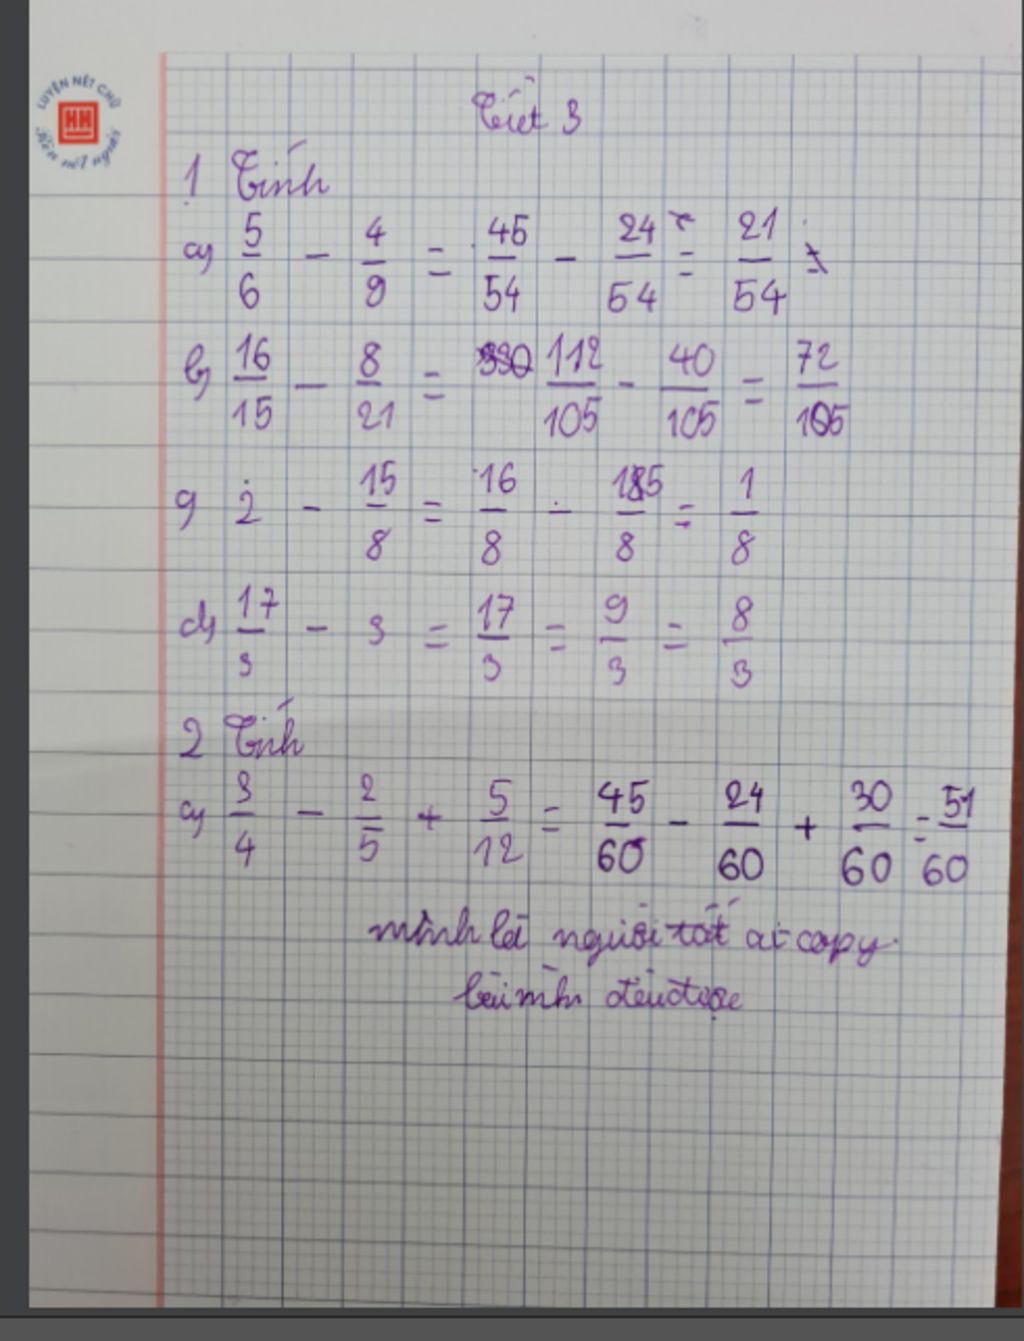 LUYỆN NÉT CHỮ
HH
Rèn nết người
Tiết 3
1 Tính
a) 5/6 - 4/9 = 45/54 - 24/54 = 21/54
b) 16/15 - 8/21 = 112/105 - 40/105 = 72/105
c) 2 - 15/8 = 16/8 - 15/8 = 1/8
d) 17/3 - 3 = 17/3 = 9/3 = 8/3
2 Tính
a) 3/4 - 2/5 + 5/12 = 45/60 - 24/60 + 30/60 = 51/60
mình là người tốt ai copy
bài mình đều được